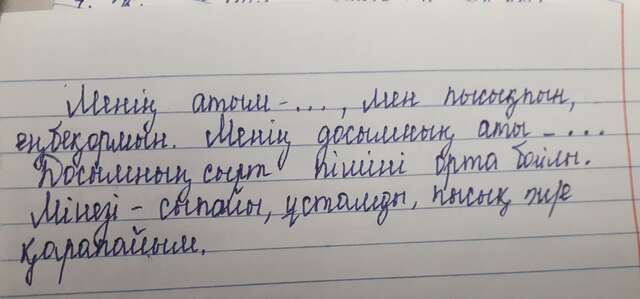 Менің атым - ..., мен пысықпын,
еңбекқормын. Менің досымның аты - ...
Досымның сырт пішіні орта бойлы.
Мінезі - сыпайы, ұстамды, пысық және
қарапайым.